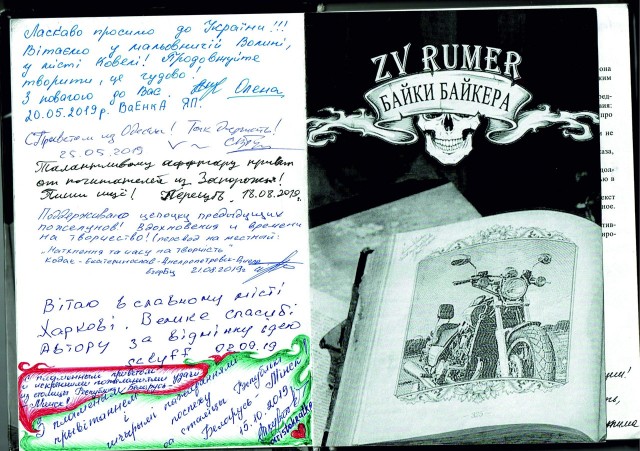 Ласкаво просимо до України!!!
Вітаємо у мальовничій Волині,
у місті Ковелі! Продовжуйте
творити, це чудово!
З повагою до Вас. Олена
20.05.2019р. ВаЕнкА ЯП.
С Приветом из Одессы! Так Держать!
25.05.2019
Талантливому аффтару привет
от почитателей из Запорожья!
Пиши ищё! Перецъ. 18.08.2019г.
Поддерживаю цепочку предыдущих
пожеланий! Вдохновения и времени
на творчество! (перевод на местной:
"Натхнення та часу на творчість"
Кодак-Екатеринослав-Днепропетровск-Днепр
21.08.2019г
Вітаю в славному місті
Харкові. Велике спасибі
Автору за відмінну ідею
02.09.19
С пламенным приветом
и искренними пожеланиями
из столицы Республики Беларусь -
Минск!
З пламенным
прывітаннем і
шчырымі пажаданнямі
са сталіцы Рэспублікі
Беларусь - Мінск
15.10.2019
ZV RUMER
БАЙКИ БАЙКЕРА